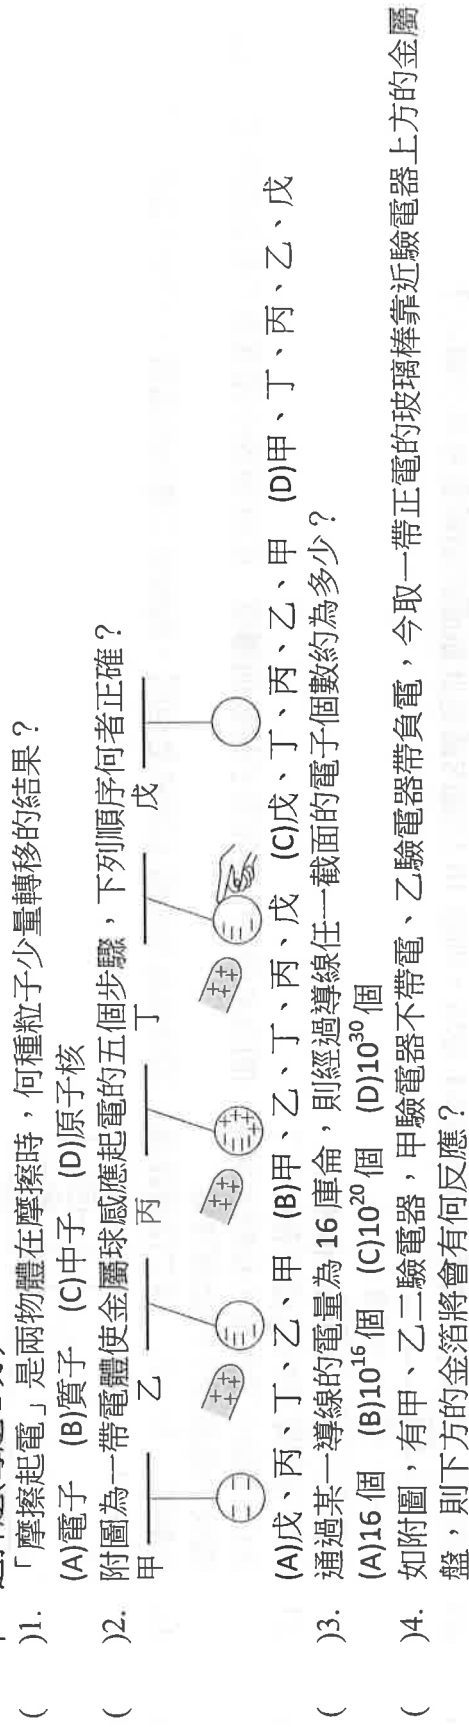 ( )1. 「摩擦起電」是兩物體在摩擦時，何種粒子少量轉移的結果？
(A)電子 (B)質子 (C)中子 (D)原子核
( )2. 附圖為一帶電體使金屬球感應起電的五個步驟，下列順序何者正確？
甲 乙 丙 丁 戊
(A)戊、丙、丁、乙、甲 (B)甲、乙、丁、丙、戊 (C)戊、丁、丙、乙、甲 (D)甲、丁、丙、乙、戊
( )3. 通過某一導線的電量為 16 庫侖，則經過導線任一截面的電子個數約為多少？
(A)16 個 (B)10¹⁶ 個 (C)10²⁰ 個 (D)10³⁰ 個
( )4. 如附圖，有甲、乙二驗電器，甲驗電器不帶電、乙驗電器帶負電，今取一帶正電的玻璃棒靠近驗電器上方的金屬
盤，則下方的金箔將會有何反應？